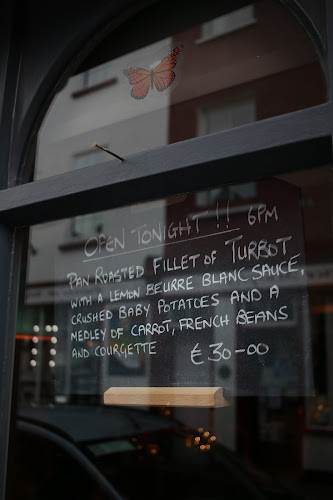 OPEN TONIGHT !! 6PM
PAN ROASTED FILLET OF TURBOT
WITH A LEMON BEURRE BLANC SAUCE,
CRUSHED BABY POTATOES AND A
MEDLEY OF CARROT, FRENCH BEANS
AND COURGETTE €30-00